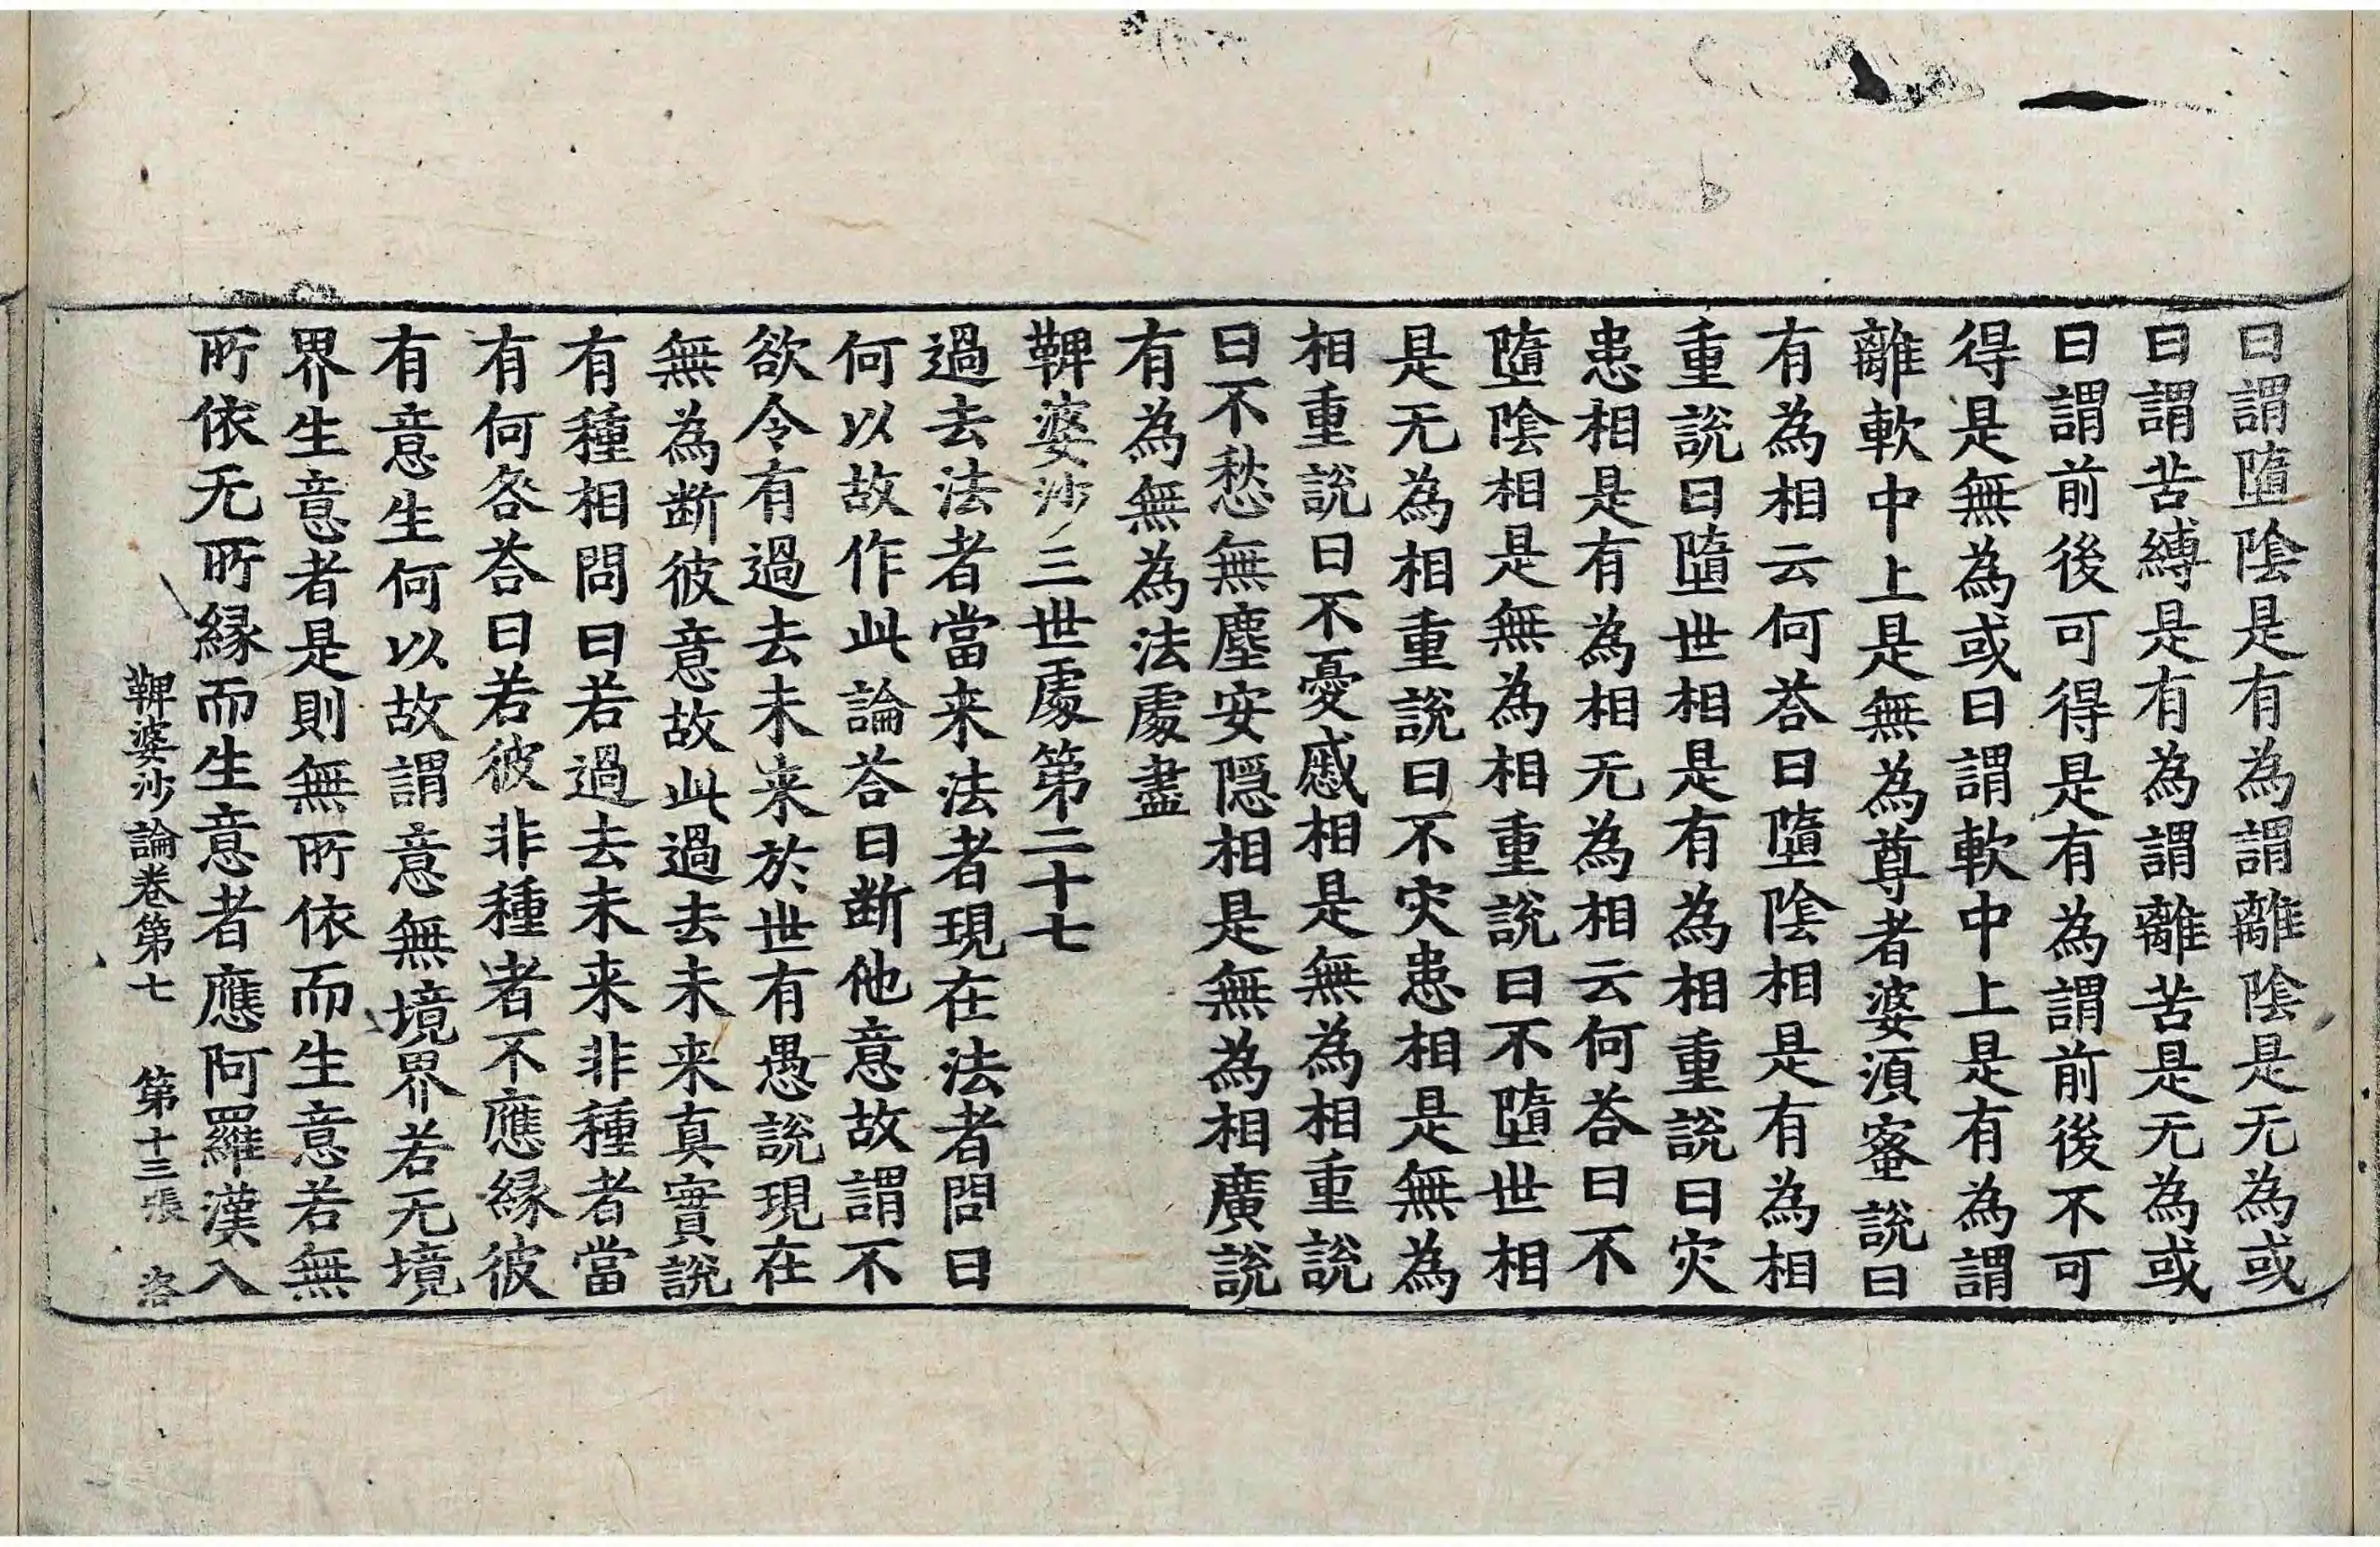 曰謂墮陰是有為謂離陰是无為或
曰謂苦縛是有為謂離苦是无為或
曰謂前後可得是有為謂前後不可
得是無為或曰謂軟中上是有為謂
離軟中上是無為尊者婆須蜜說曰
有為相云何荅曰墮陰相是有為相
重說曰墮世相是有為相重說曰灾
患相是有為相无為相云何荅曰不
墮陰相是無為相重說曰不墮世相
是无為相重說曰不灾患相是無為
相重說曰不憂慼相是無為相重說
曰不愁無塵安隠相是無為相廣說
有為無為法處盡
鞞婆沙三世處第二十七
過去法者當来法者現在法者問曰
何以故作此論荅曰断他意故謂不
欲令有過去未来於世有愚說現在
無為断彼意故此過去未来真實說
有種相問曰若過去未来非種者當
有何咎荅曰若彼非種者不應縁彼
有意生何以故謂意無境界若无境
界生意者是則無所依而生意若無
所依无所縁而生意者應阿羅漢入
鞞婆沙論卷第七 第十三張 洛